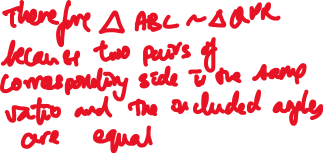 Therefore △ ABC ~ △ QPR
because two pairs of
corresponding side is the same
ratio and the included angles
are equal